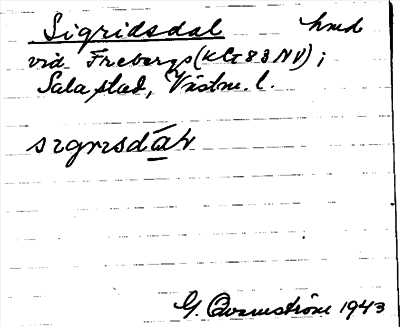 Sigridsdal hmd
vid Frebergs (KG 83 NV) i
Sala stad, Västm. l.
sɪgrɪsdɑ̲́ɫ
G. Qvarnström 1943